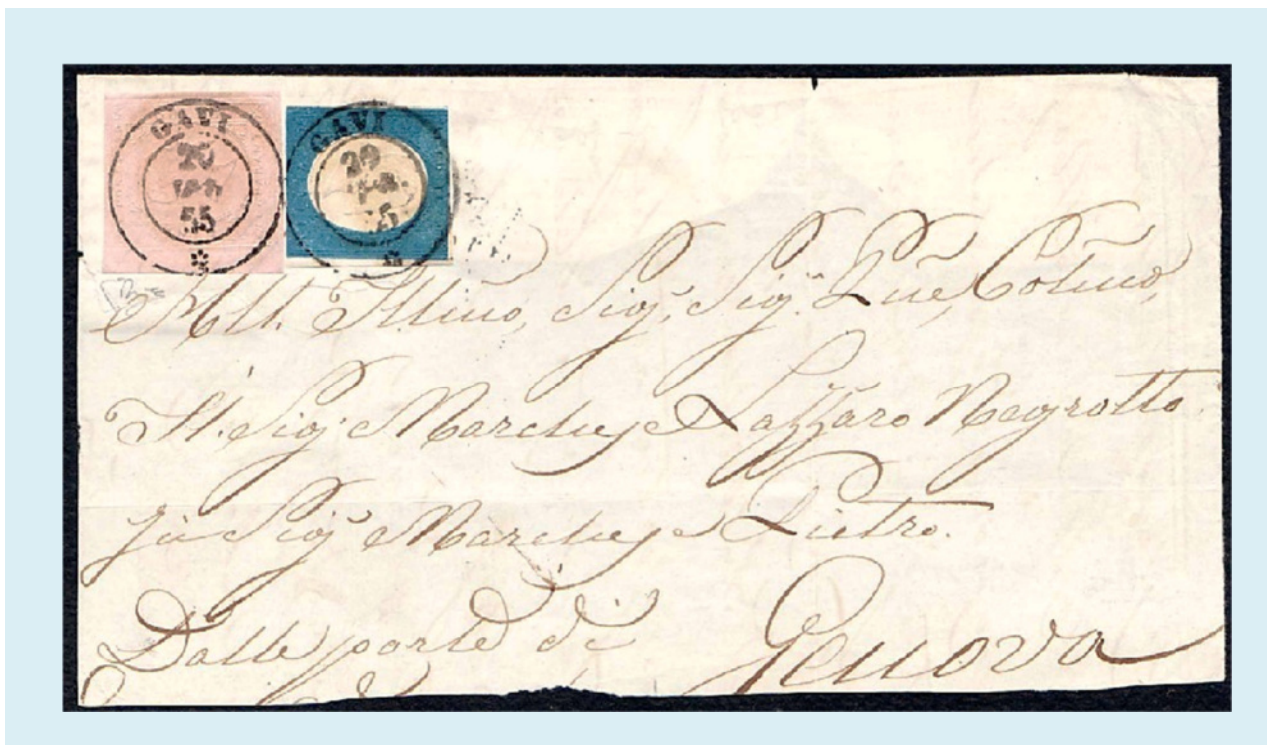 GAVI
20
55
*
GAVI
20
55
*
Illmo, Sig.r, Sig.r
Il Sig.r Marchese Lazzaro Negrotto
Sig.r Marchese Pietro.
Dalle parte di Genova